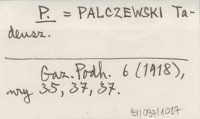 P. = PALCZEWSKI Ta-
deusz.
Gaz. Podh. 6 (1918),
nry 35, 37, 37.